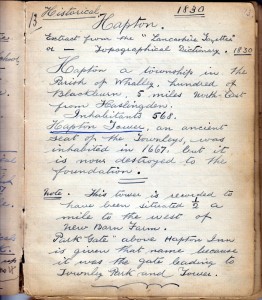 13 Historical 1830
Hapton.
Extract from the "Lancashire Gazetteer"
or — Topographical Dictionary. 1830
Hapton a township in the
Parish of Whalley, hundred of
Blackburn, 5 miles North-East
from Haslingden:
Inhabitants 568.
Hapton Tower, an ancient
seat of the Towneleys, was
inhabited in 1667. but it
is now destroyed to the
foundation.
Note. This tower is recorded to
have been situated ½ a
mile to the west of
New Barn Farm.
Park Gate above Hapton Inn
is given that name because
it was the gate leading to
Townley Park and Tower.